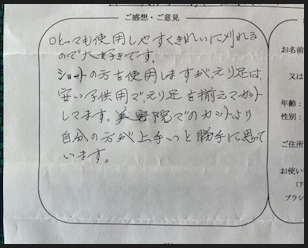 ご感想・ご意見
○とっても使用しやすくきれいに刈れる
ので大好きです。
ショートの方を使用しますが、えり足は、
安い子供用で、えり足を揃えてカット
してます。美容院でのカットより
自分の方が上手いっと勝手に思って
います。
お名前
又は
年齢:
性別:
ご住所
お使
ブラシ